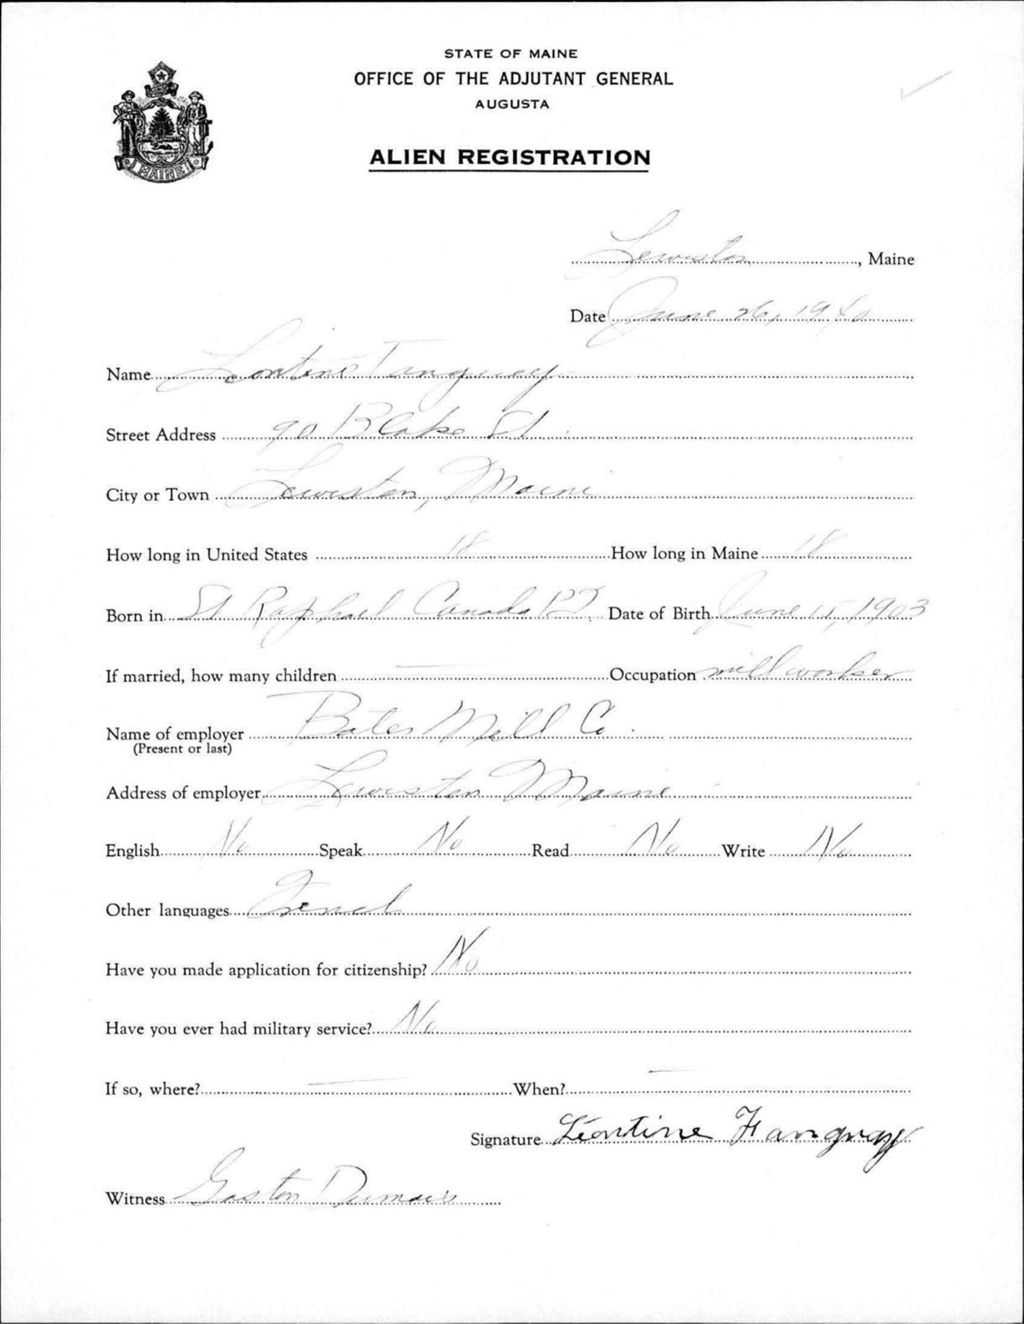 STATE OF MAINE
OFFICE OF THE ADJUTANT GENERAL
AUGUSTA
ALIEN REGISTRATION
MAINE
Lewiston, Maine
Date June 26, 1940
Name Lontine Tanguay
Street Address 90 Blake St.
City or Town Lewiston, Maine
How long in United States 18 How long in Maine 18
Born in St Raphael Canada P2 Date of Birth June 15, 1903
If married, how many children — Occupation millworker
Name of employer Bates Mill Co.
(Present or last)
Address of employer Lewiston Maine
English No Speak No Read No Write No
Other languages French
Have you made application for citizenship? No
Have you ever had military service? No
If so, where? — When? —
Signature Léontine Tanguay
Witness Gaston Dumais